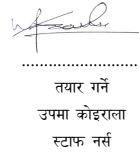 ..............................
तयार गर्ने
उपमा कोइराला
स्टाफ नर्स